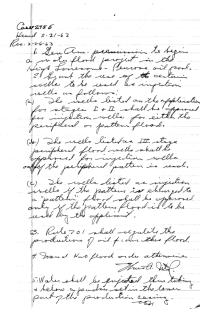 Case 2455
Heard 2-21-62
Rec. 2-26-62
1. Grant permission to begin
a water flood project in the
oil pool.
2. Grant the use of certain
wells to be used as injection
wells as follows:
(a) The wells listed on the application
for stages I & II shall be approved
for injection wells for either the
peripheral or pattern flood.
(b) The wells listed as III stage
peripheral flood wells shall be
approved for injection wells
only if the peripheral pattern is used.
(c) The wells listed as injection
wells if the pattern is changed to
a pattern flood shall be approved
only if the pattern flood is to be
used by the applicant.
3. Rule 701 shall regulate the
production of oil from this flood.
4. flood order otherwise
5. Water shall be injected thru tubing
& below a packer set in the lower
part of the production casing.